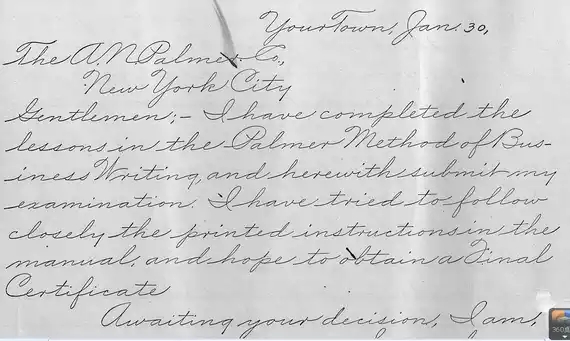 Your Town, Jan. 30,
The A. N. Palmer Co.,
New York City
Gentlemen;- I have completed the
lessons in the Palmer Method of Bus-
iness Writing, and herewith submit my
examination. I have tried to follow
closely the printed instructions in the
manual, and hope to obtain a Final
Certificate
Awaiting your decision, I am,